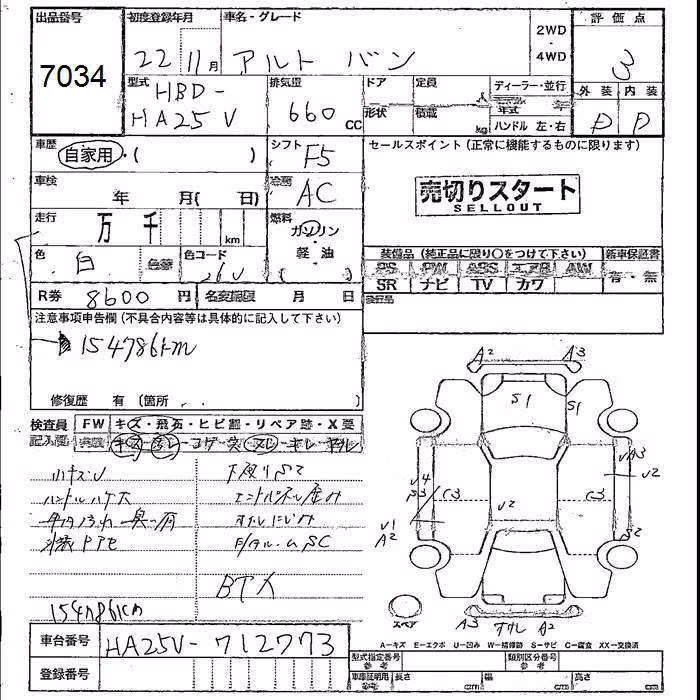 出品番号
7034
初度登録年月
22 11月
車名・グレード
アルト バン
2WD
・
4WD
評価点
3
外装 内装
D D
型式
HBD-
HA25V
排気量
660 CC
ドア
形状
定員
積載 kg
ディーラー・並行
年式
ハンドル 左・右
車歴
自家用・( )
シフト
F5
セールスポイント (正常に機能するものに限ります)
売切りスタート
SELLOUT
車検
年 月( 日)
冷房
AC
走行
万 千 km
燃料
ガソリン
・
軽油
( )
色
白
色替
色コード
26U
装備品 (純正品に限り○をつけて下さい)
PS PW ABS エアB AW
SR ナビ TV カワ
新車保証書
有・無
R券 8600 円
名変期限 月 日
注意事項申告欄 (不具合内容等は具体的に記入して下さい)
154786km
修復歴 有 (箇所 )
検査員
記入欄
FW キズ・飛石・ヒビ割・リペア跡・X受
小キズU
ハンドルハゲ大
下廻りSC
BTX
154786km
A2 A3
S1 S1
U4
S3
C3
U2
C3
UA3
U2
U1
A2
S2
A3 A2
スペア
A-キズ E-エクボ U-凹み W-補修跡 S-サビ C-腐食 XX-交換済
車台番号
HA25V-712773
登録番号
型式指定番号
参考
類別区分番号
参考
車庫証明用
参考
長さ cm
幅 cm
高さ cm